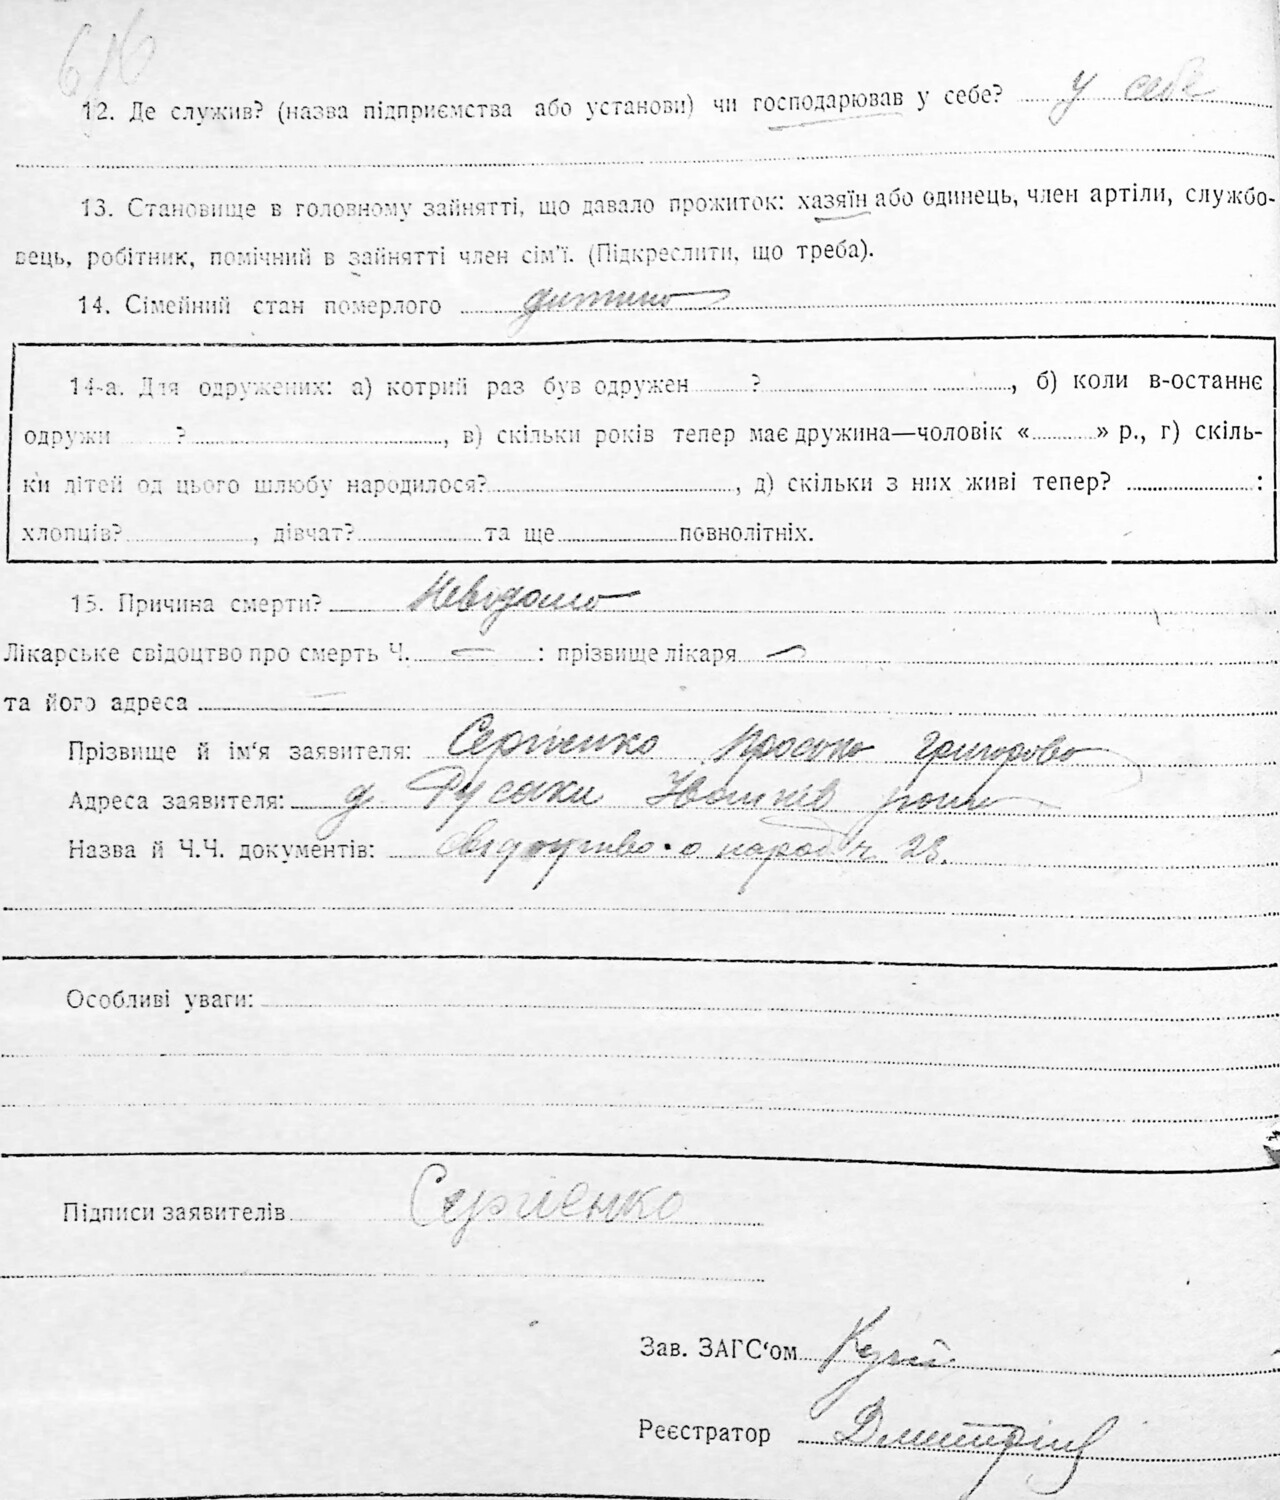 616
12. Де служив? (назва підприємства або установи) чи господарював у себе? у себе
13. Становище в головному зайнятті, що давало прожиток: хазяїн або одинець, член артіли, службо-
вець, робітник, помічний в зайнятті член сім'ї. (Підкреслити, що треба).
14. Сімейний стан померлого дитина
14-а. Для одружених: а) котрий раз був одружен ? , б) коли в-останнє
одружи ? , в) скільки років тепер має дружина—чоловік « » р., г) скіль-
ки дітей од цього шлюбу народилося? , д) скільки з них живі тепер? :
хлопців? , дівчат? та ще повнолітніх.
15. Причина смерти? Неведомо
Лікарське свідоцтво про смерть Ч. — : прізвище лікаря —
та його адреса —
Прізвище й ім'я заявителя: Сергієнко Проська Григорова
Адреса заявителя: д. Русаки Іванків району
Назва й Ч.Ч. документів: о народ ч 23.
Особливі уваги:
Підписи заявителів Сергієнко
Зав. ЗАГС'ом
Реєстратор